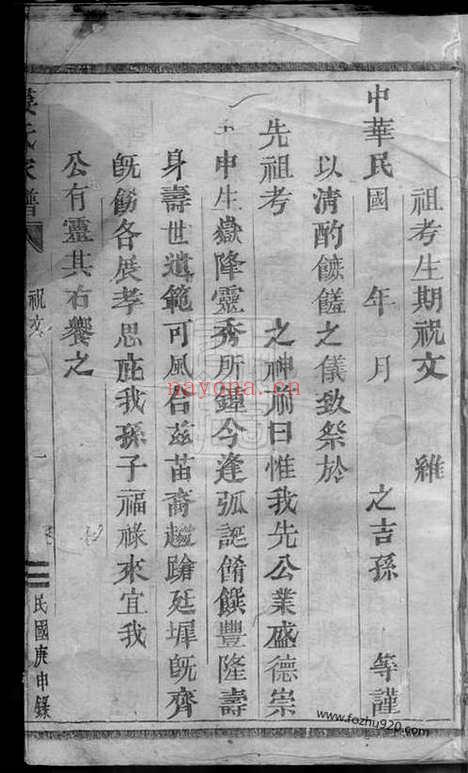 祖考生期祝文　維
中華民國　年　月　之吉孫　等謹
以清酌饌饈之儀致祭於
先祖考　之神前曰惟我先公業盛德崇
申生嶽降靈秀所鍾今逢弧誕餚饌豐隆壽
身壽世遺範可風合茲苗裔趨蹌延墀既齊
既飭各展孝思庇我孫子福祿來宜我
公有靈其右饗之
氏家譜
祝文
一
民國庚申錄
nayona.cn
www.fozhu920.com